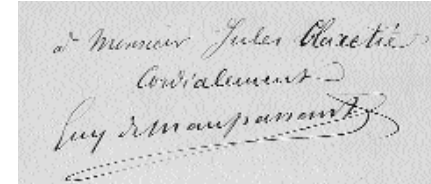 à Monsieur Jules Claretie
Cordialement
Guy de Maupassant